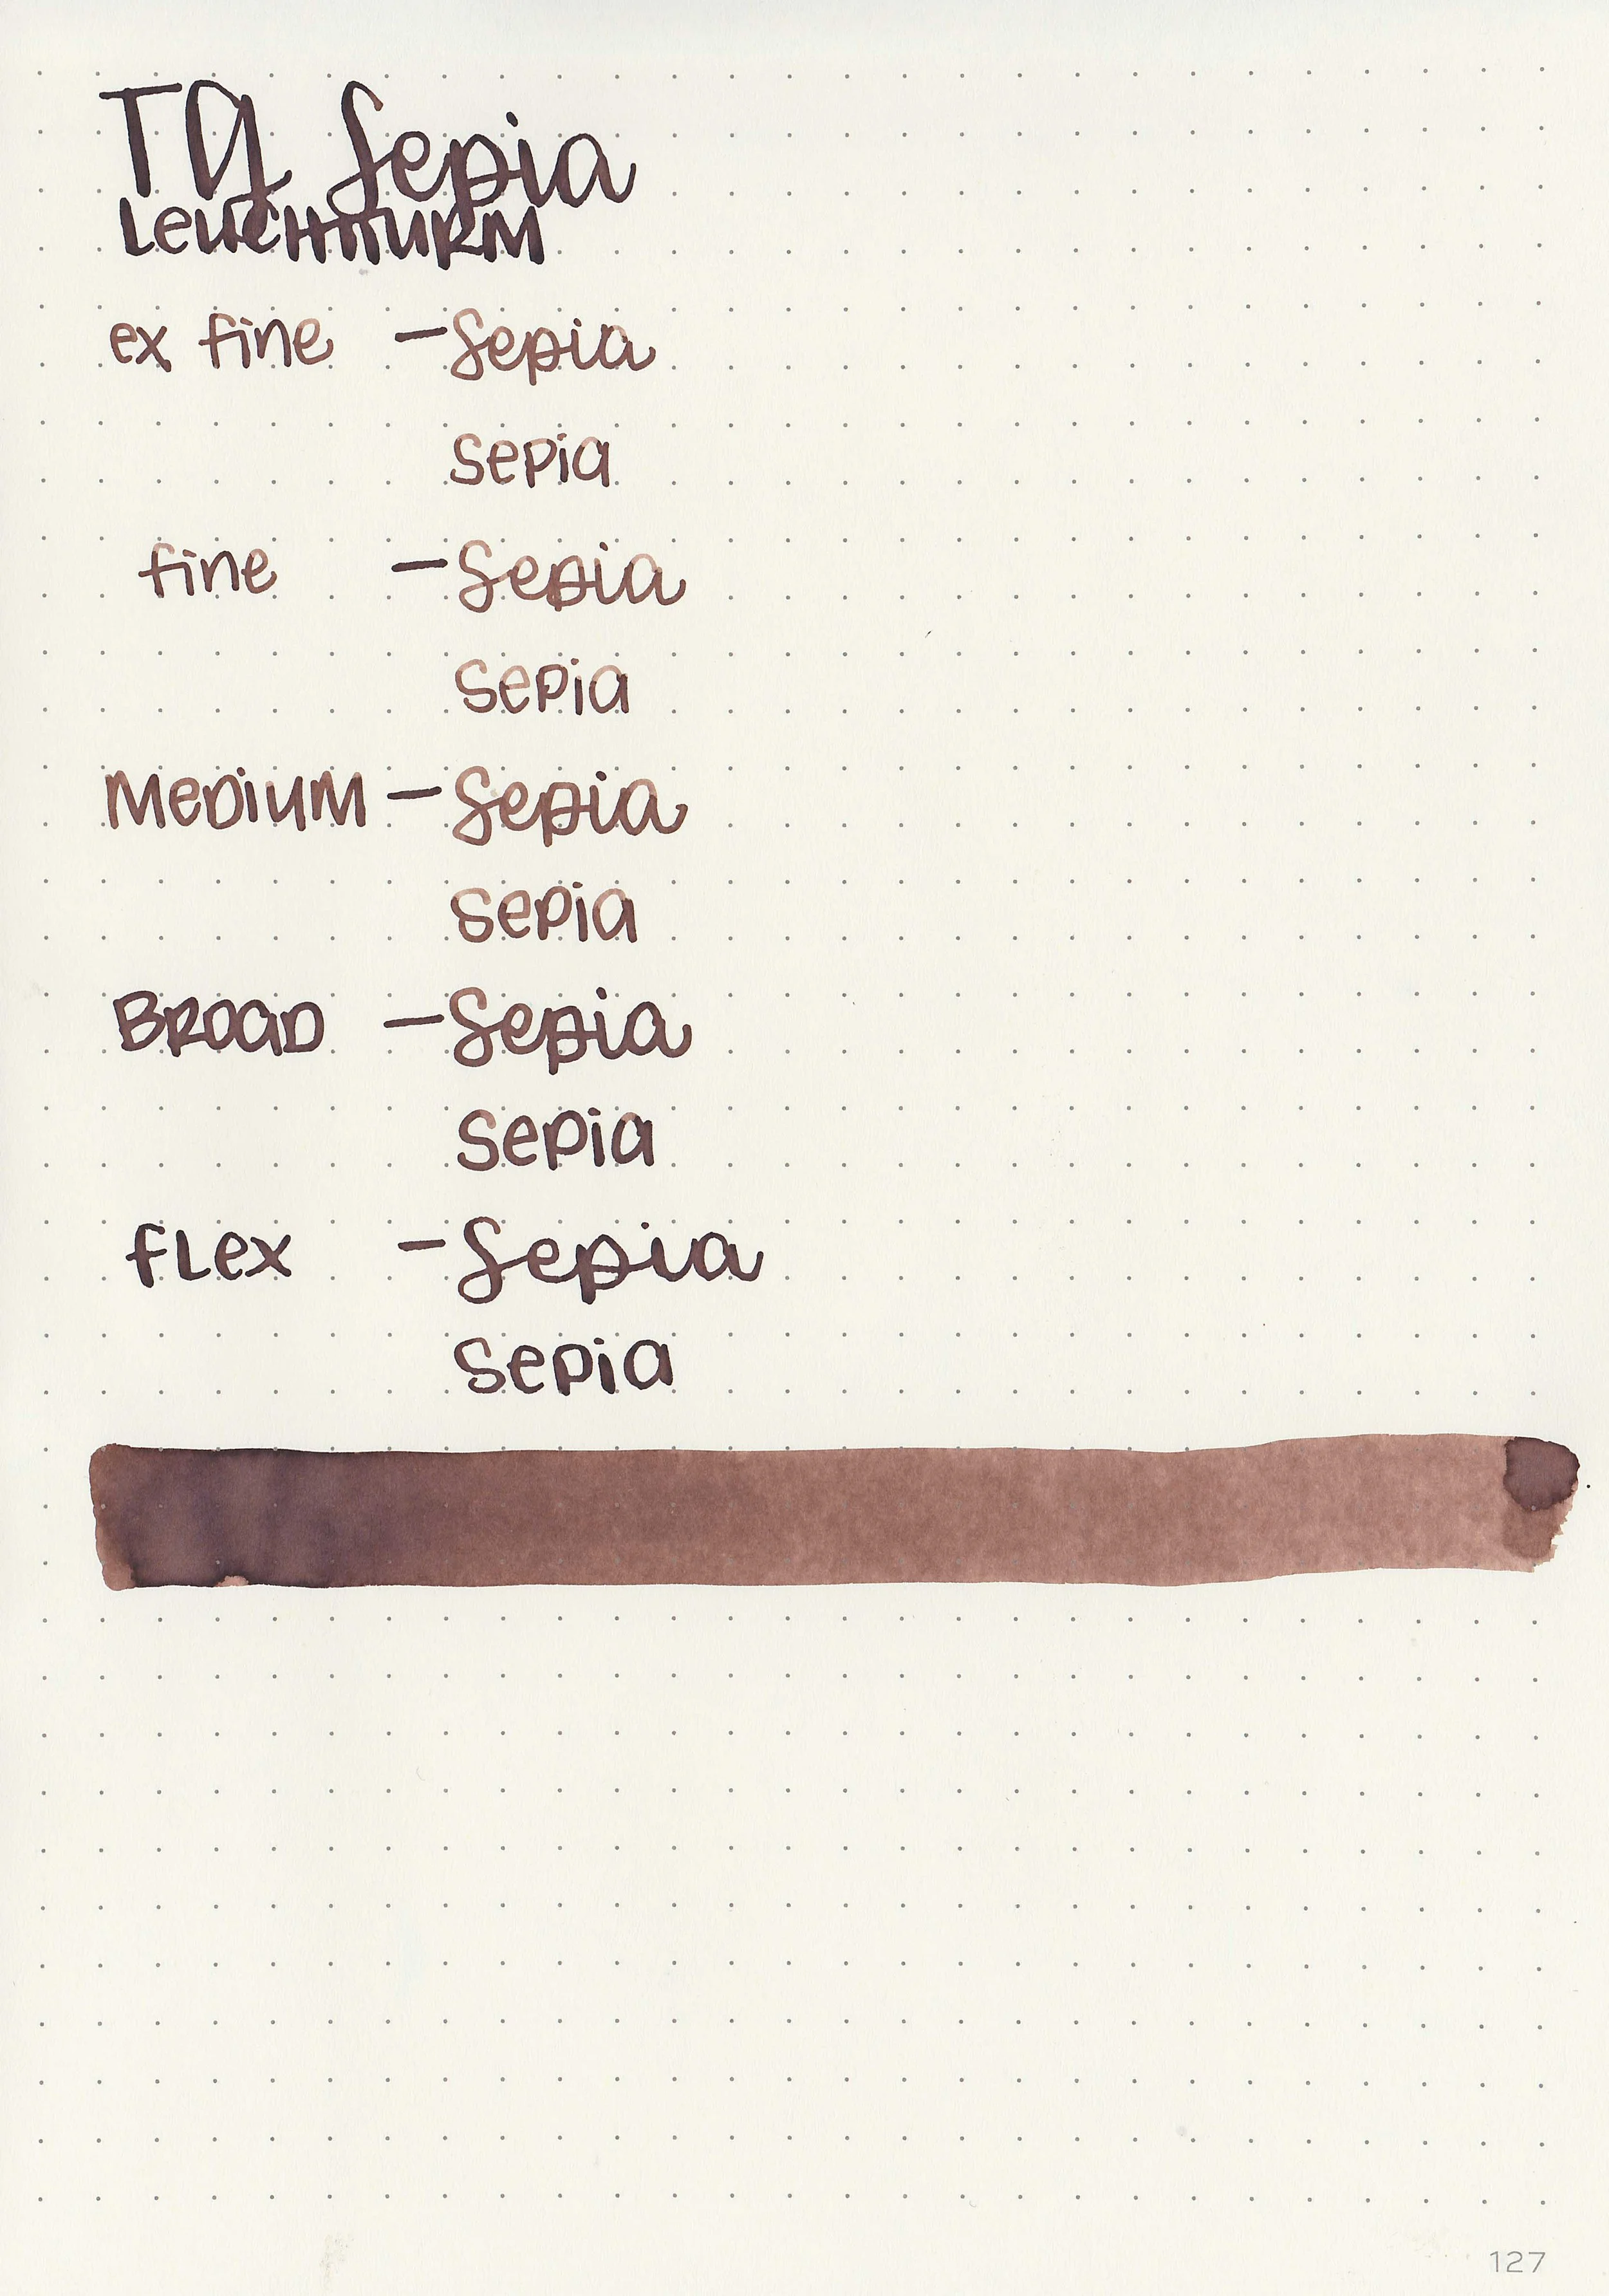 TG Sepia
LEUCHTTURM
ex fine - Sepia
sepia
fine - Sepia
sepia
MEDIUM - Sepia
sepia
BROAD - Sepia
sepia
FLEX - Sepia
sepia
127